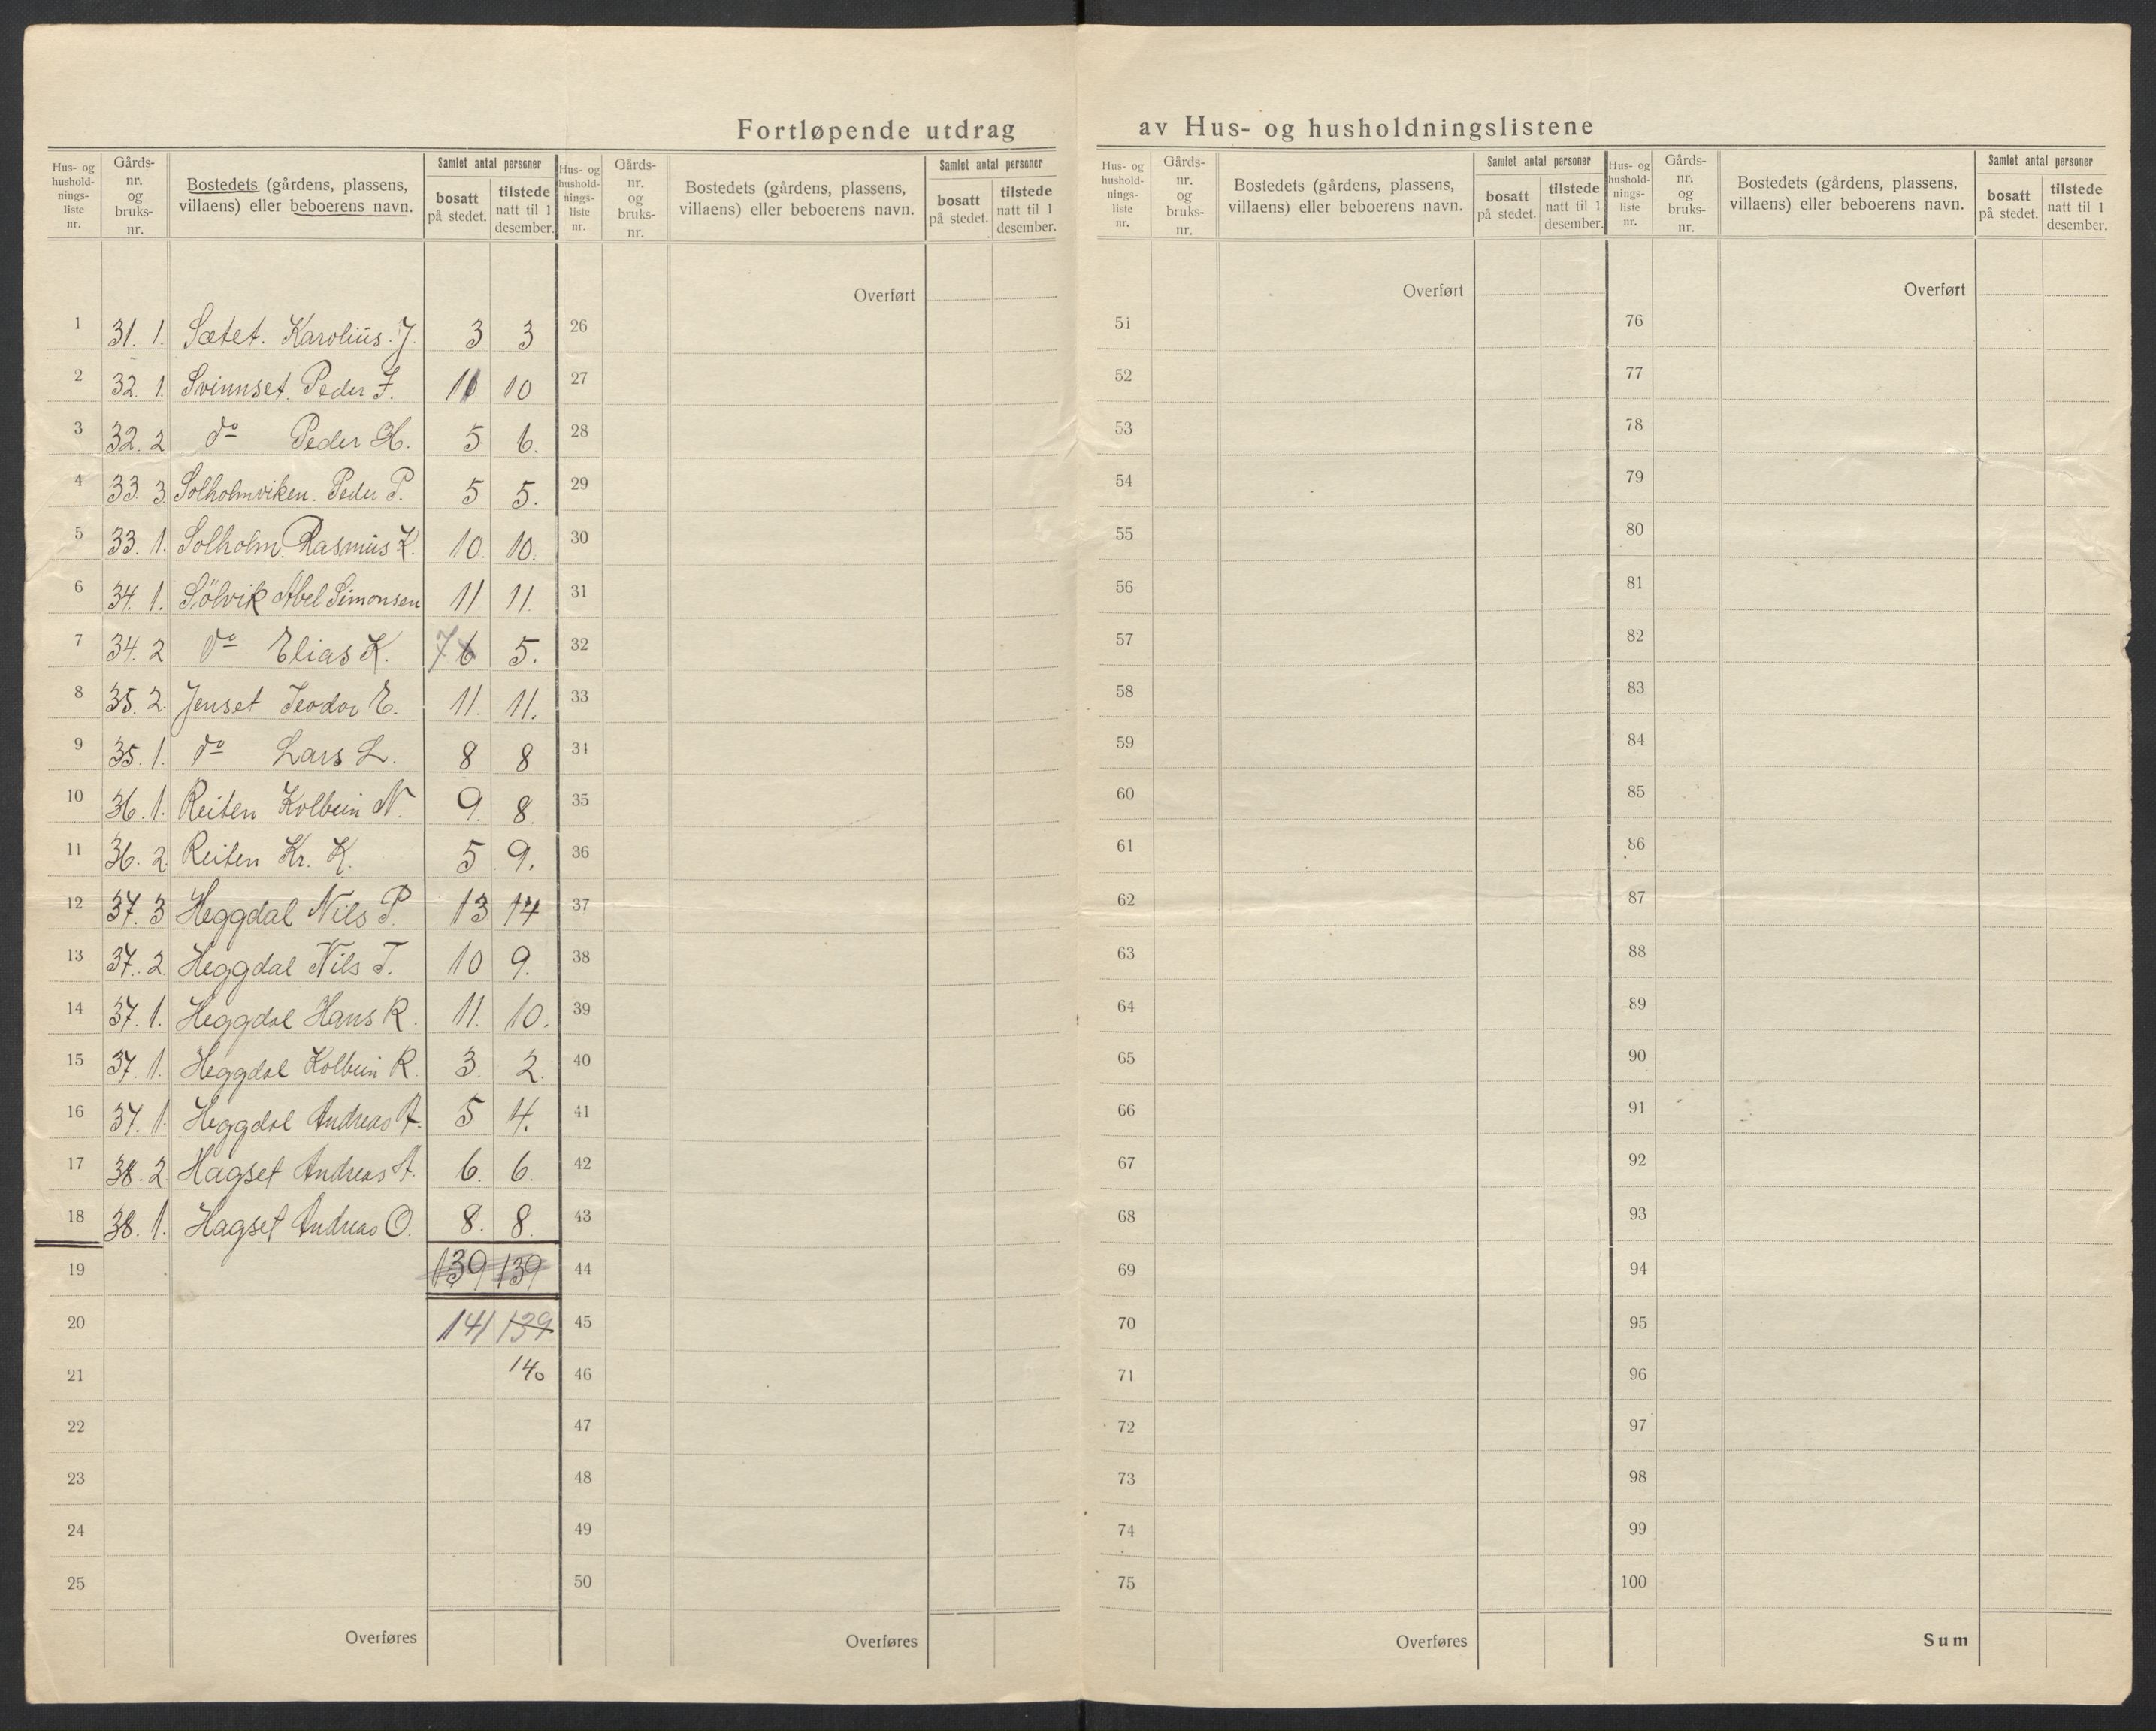 Fortløpende utdrag av Hus- og husholdningslistene
Hus- og hushold- nings- liste nr. | Gårds- nr. og bruks- nr. | Bostedets (gårdens, plassens, villaens) eller beboerens navn. | Samlet antal personer | bosatt på stedet. | tilstede natt til 1 desember.
1 31. 1. Sætet. Karolius. J. 3 3
2 32. 1. Svinnset. Peder J. 11 10
3 32. 2 do Peder H. 5 6.
4 33. 3. Solholmviken. Peder P. 5 5.
5 33. 1. Solholm. Rasmus K. 10. 10.
6 34. 1. Sölvik Abel Simonsen 11 11.
7 34. 2 do Elias K. 7 6 5.
8 35. 2. Jenset Teodor E. 11. 11.
9 35. 1. do Lars L. 8 8
10 36. 1. Reiten Kolbein N. 9. 8.
11 36. 2. Reiten Kr. K. 5 9.
12 37. 3 Heggdal Nils P. 13 14
13 37. 2. Heggdal Nils T. 10 9.
14 37. 1. Heggdal Hans R. 11. 10.
15 37. 1. Heggdal Kolbein R. 3. 2.
16 37. 1. Heggdal Andreas A. 5 4.
17 38. 2. Hagset Andreas A. 6. 6.
18 38. 1. Hagset Andreas O. 8. 8.
19 139 139
20 141 139
21 140
22
23
24
25
Overføres
Hus- og hushold- nings- liste nr. | Gårds- nr. og bruks- nr. | Bostedets (gårdens, plassens, villaens) eller beboerens navn. | Samlet antal personer | bosatt på stedet. | tilstede natt til 1 desember.
Overført
26
27
28
29
30
31
32
33
34
35
36
37
38
39
40
41
42
43
44
45
46
47
48
49
50
Overføres
Hus- og hushold- nings- liste nr. | Gårds- nr. og bruks- nr. | Bostedets (gårdens, plassens, villaens) eller beboerens navn. | Samlet antal personer | bosatt på stedet. | tilstede natt til 1 desember.
Overført
51
52
53
54
55
56
57
58
59
60
61
62
63
64
65
66
67
68
69
70
71
72
73
74
75
Overføres
Hus- og hushold- nings- liste nr. | Gårds- nr. og bruks- nr. | Bostedets (gårdens, plassens, villaens) eller beboerens navn. | Samlet antal personer | bosatt på stedet. | tilstede natt til 1 desember.
Overført
76
77
78
79
80
81
82
83
84
85
86
87
88
89
90
91
92
93
94
95
96
97
98
99
100
Sum